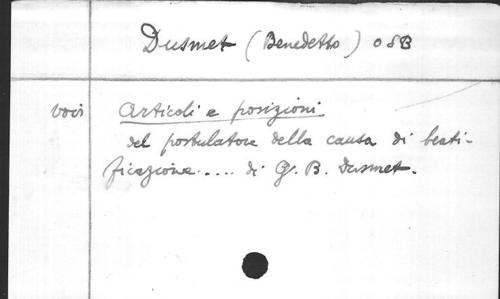 Dusmet (Benedetto) OSB
voir Articoli e posizioni
del postulatore della causa di beati-
ficazione.... di G. B. Dusmet.